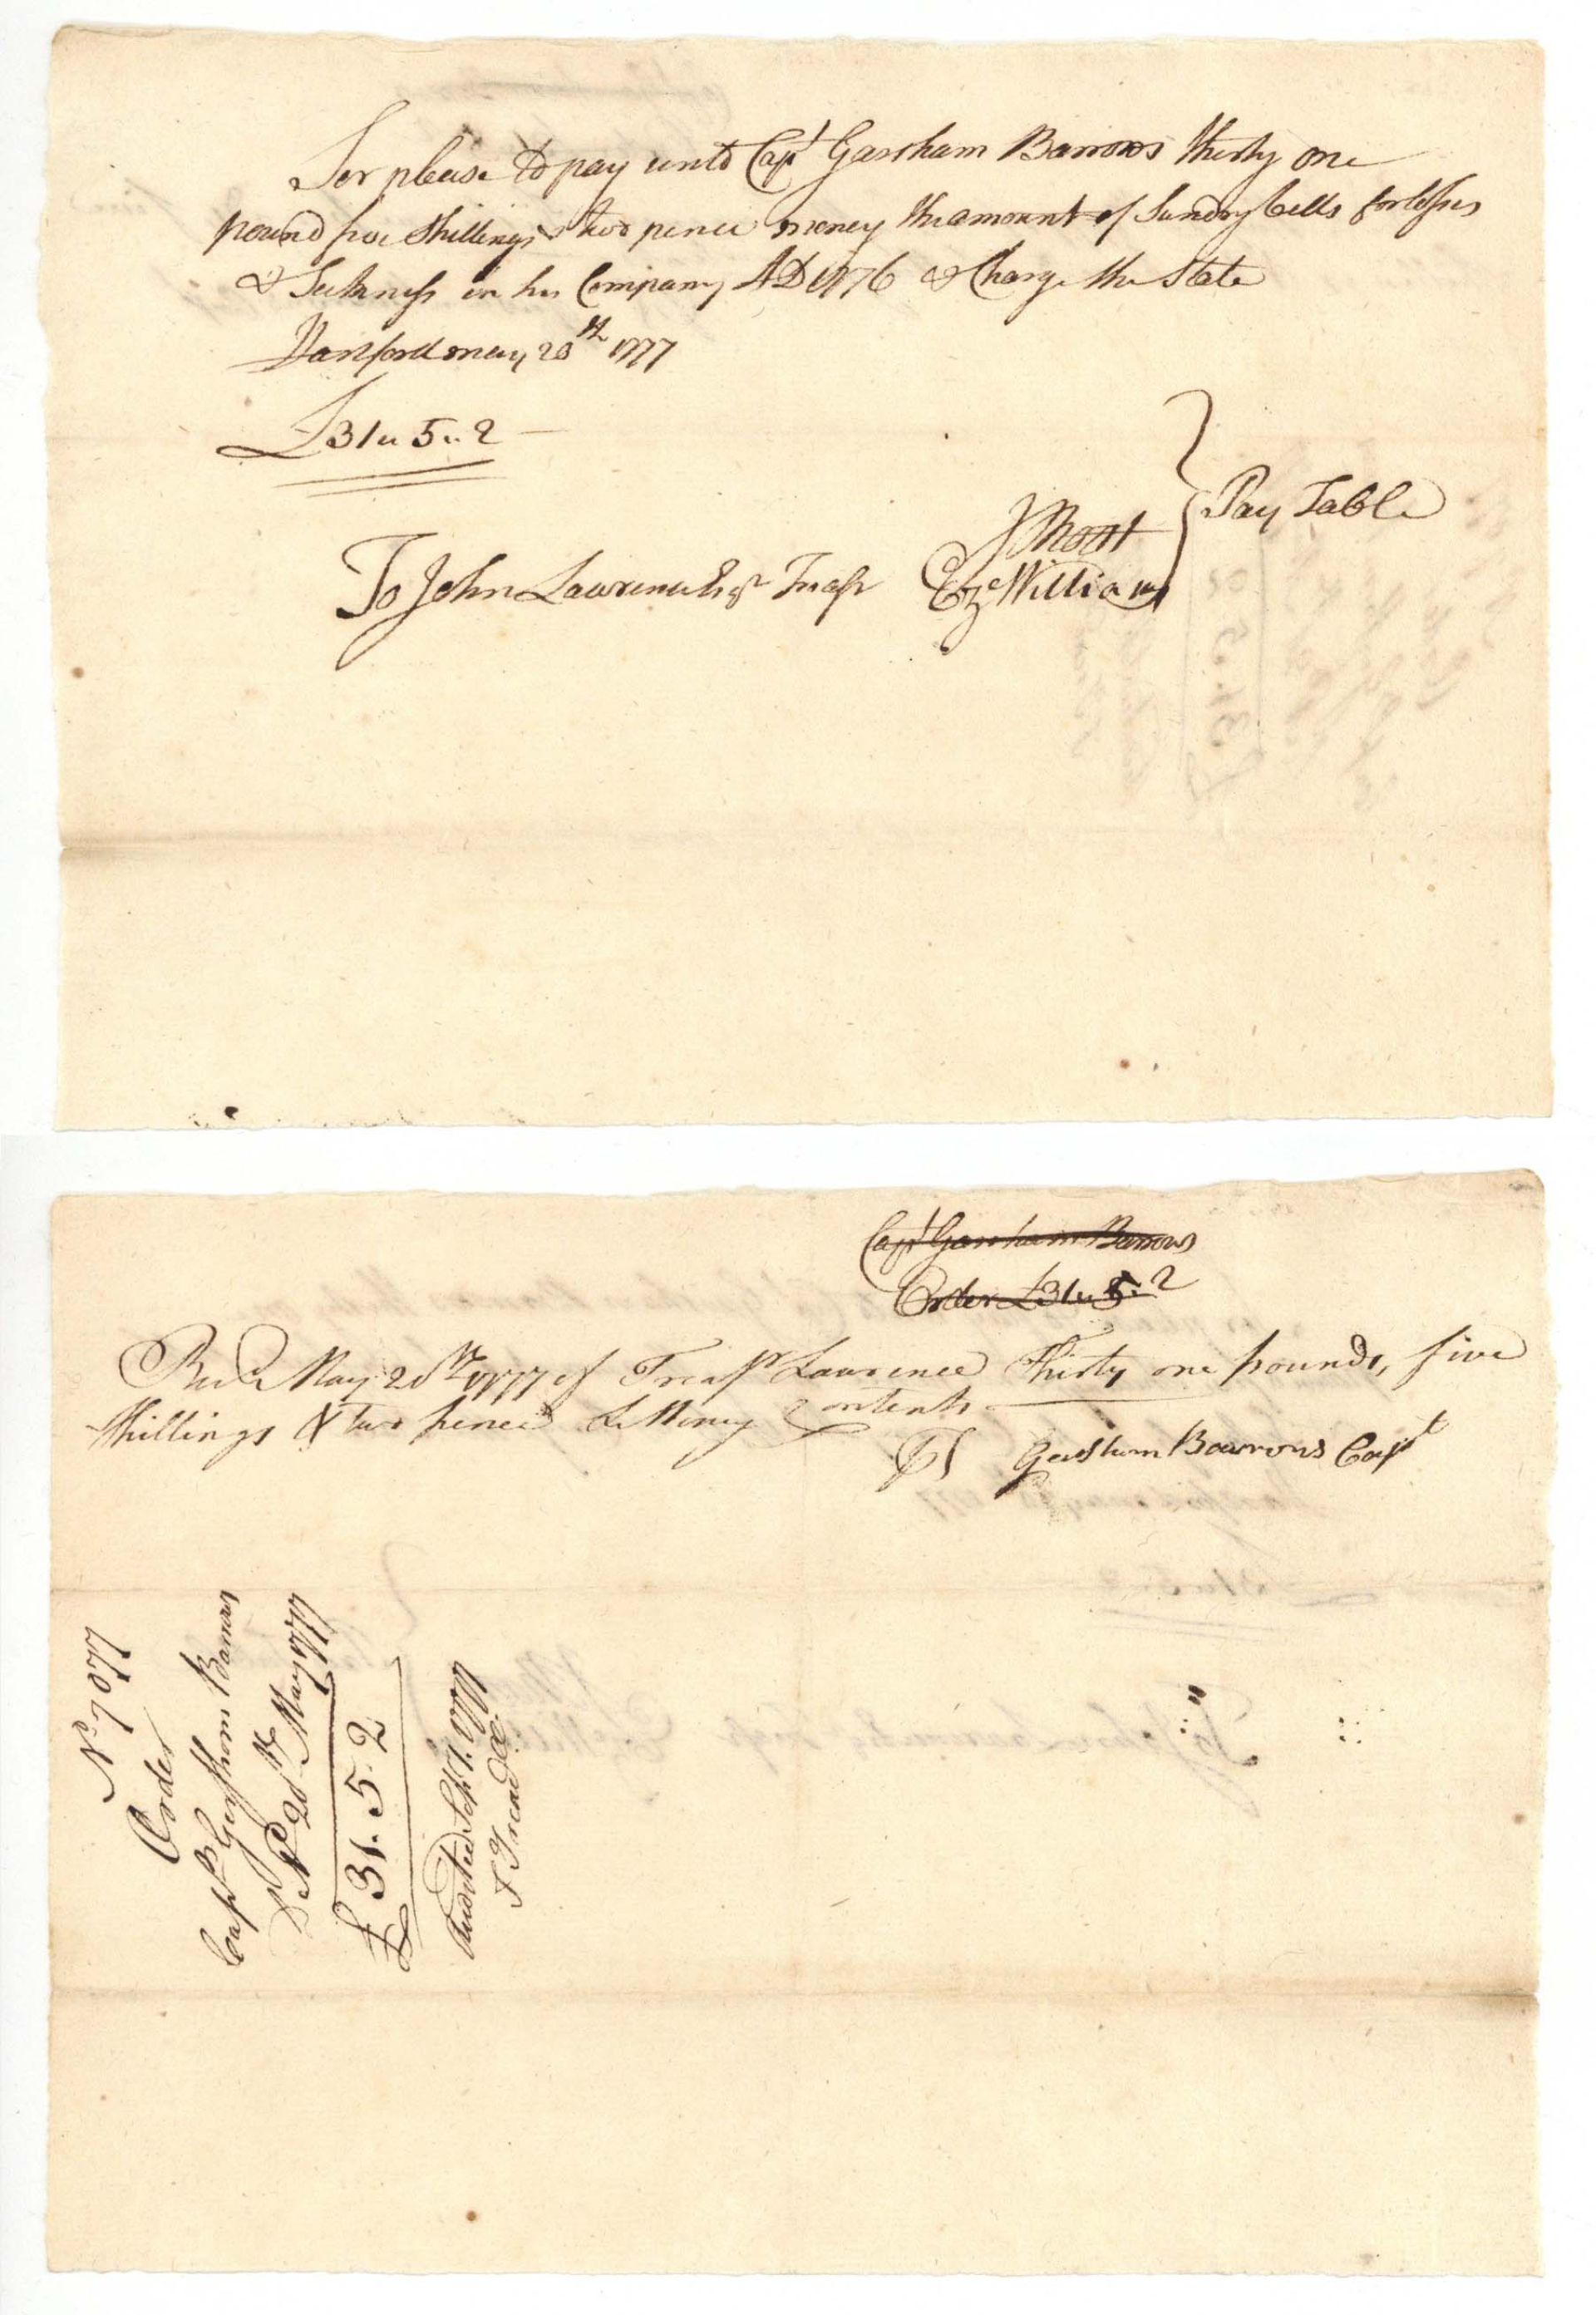 Ser please to pay unto Capt Garsham Barrows thirty one
pound five Shillings two pence money the amount of Sundry bills for losses
& Sickness in his Company AD 1776 & Charge the State
Hartford may 20th 1777
£31 " 5 " 2
Pay Table
J Root
To John Lawrence Esqr Treasr Eze Williams
Capt Garsham Barrows
Order £31 " 5 " 2
Recd May 20th 1777 of Treasr Lawrence Thirty one pounds, five
Shillings & two pence L Money Contents
Gershum Barrows Capt
No 7077
Order
Capt Gershom Barrows
Dd 20th May 1777
£ 31. 5. 2
Audited Sept 1. 1777